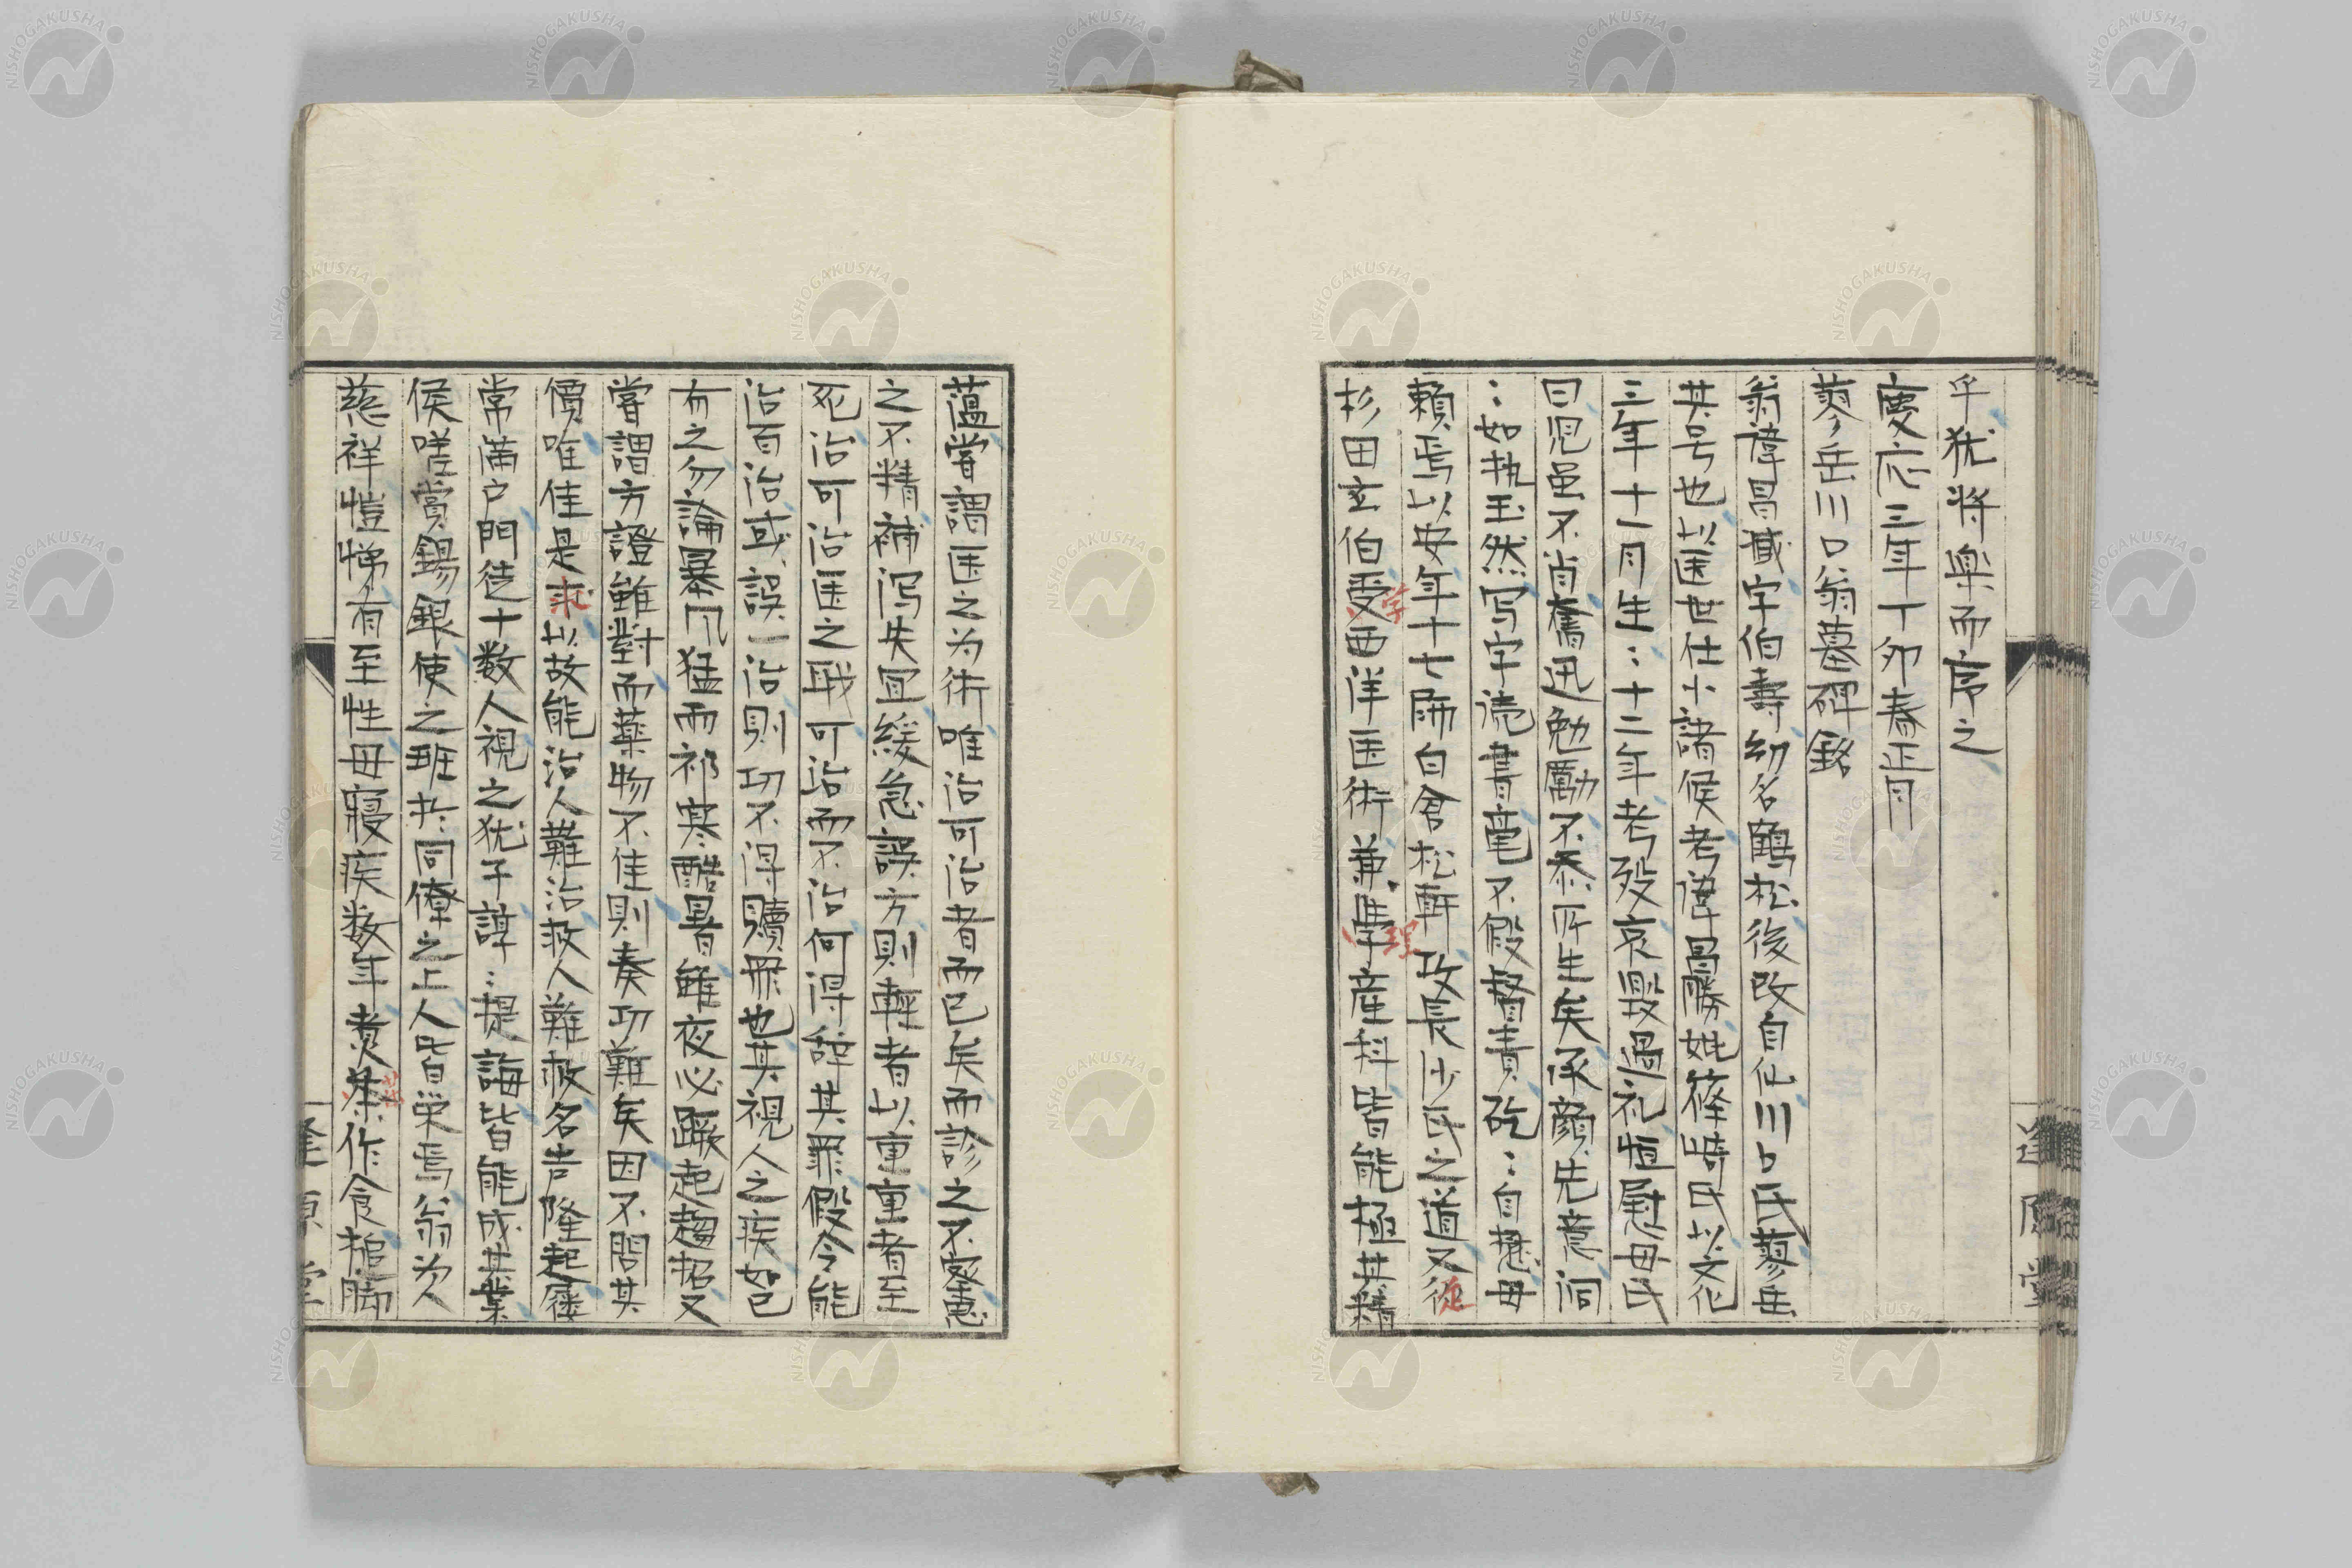 乎犹将楽而序之
慶応三年丁卯春正月
蓼岳川口翁墓碑銘
翁諱昌蔵字伯壽幼名鶴松後改自仙川口氏蓼岳
其号也以医世仕小諸侯考諱昌勝妣篠崎氏以文化
三年十一月生〻十二年考歿哀毀過礼恒慰母氏
曰児虽不肖奮迅勉勵不忝所生矣承顔先意洞
〻如執玉然写字読書毫不假督責矻〻自摅毋
頼焉以安年十七師自倉松軒攻長沙氏之道又從
杉田玄伯受西洋医術兼学産科皆能極其精
学
理
蘊嘗謂医之为術唯治可治者而已矣而診之不審慮
之不精補泻失宜緩急誤方則輕者以重重者至
死治可治医之職可治而不治何得辞其罪假令能
治百治或誤一治則功不得贖罪也其視人之疾如己
有之勿論暴风猛雨祁寒酷暑雖夜必蹶起趨招又
嘗謂方證雖對而薬物不佳則奏功難矣因不問其
價唯佳是求以故能治人難治救人難救名声隆起屦
常満户門徒十数人視之犹子諄〻提誨皆能成其業
侯嗟賞錫銀使之班於同僚之上人皆栄焉翁为人
慈祥愷悌有至性母寝疾数年煮茶作食搥脚
逢原堂
逢原堂
NISHOGAKUSHA